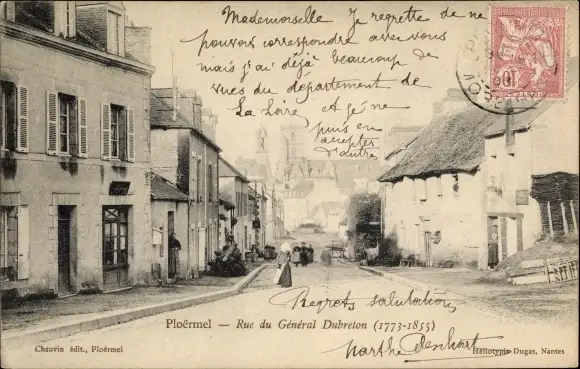 Mademoiselle Je regrette de ne
pouvoir correspondre avec vous
mais j'ai déjà beaucoup de
vues du département de
La Loire et je ne
puis en
accepter
d'autre
10
Regrets salutation
Marthe
Ploërmel — Rue du Général Dubreton (1773-1855)
Chauvin édit., Ploërmel
Héliotypie Dugas, Nantes